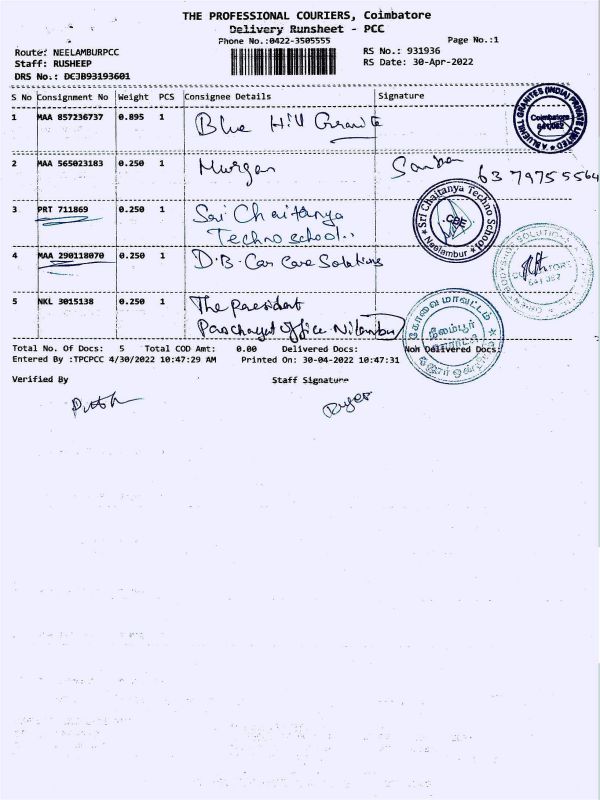 THE PROFESSIONAL COURIERS, Coimbatore
Delivery Runsheet - PCC
Phone No.:0422-3505555
Page No.:1
Route: NEELAMBURPCC
RS No.: 931936
Staff: RUSHEEP
RS Date: 30-Apr-2022
DRS No.: DCJB93193601
S No Consignment No Weight PCS Consignee Details Signature
1 MAA 857236737 0.895 1 Blue Hill Granite
Coimbatore
641062
2 MAA 565023183 0.250 1 Murgan 63 79755564
3 PRT 711869 0.250 1 Sri Chaitanya
Techno school..
Sri Chaitanya Techno School
Neelambur
4 MAA 290118070 0.250 1 D.B. Car Care Solutions
5 NKL 3015138 0.250 1 The President
Panchayat office Nilambur
கோவை மாவட்டம்
நீலம்பூர்
ஊராட்சி
Total No. Of Docs: 5 Total COD Amt: 0.00 Delivered Docs: Non Delivered Docs:
Entered By :TPCPCC 4/30/2022 10:47:29 AM Printed On: 30-04-2022 10:47:31
Verified By Staff Signature